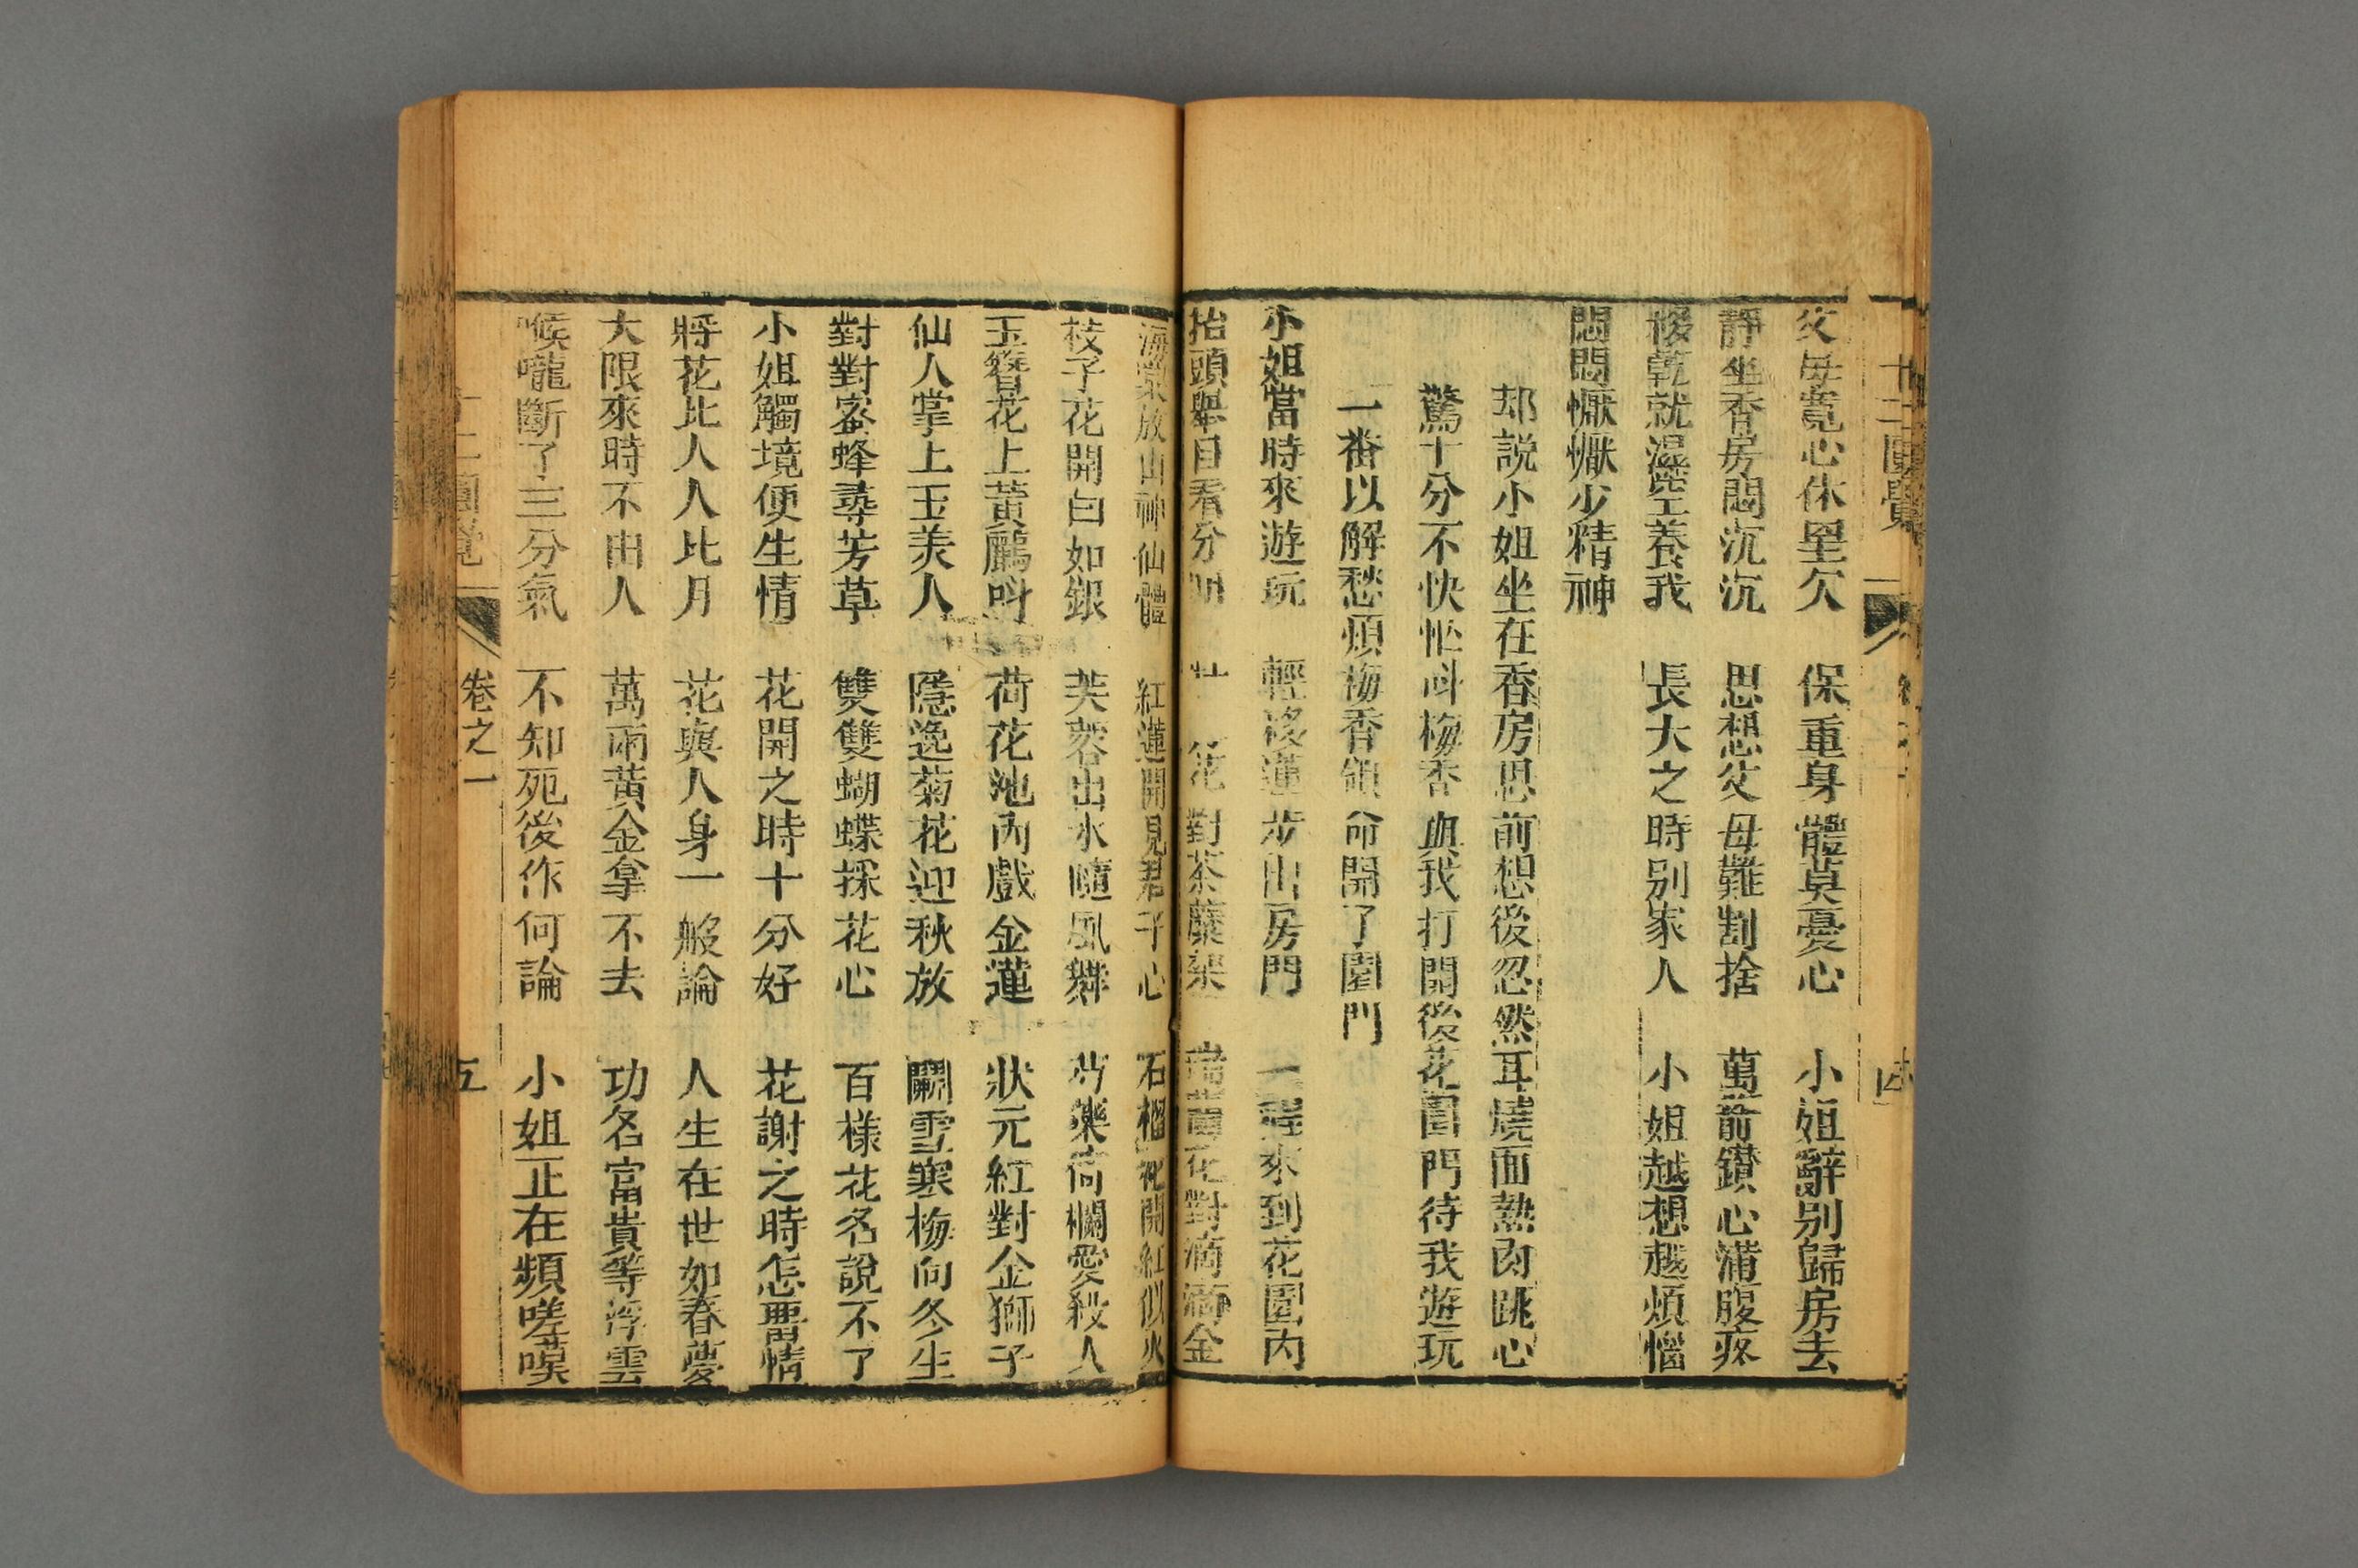 十二圓覺
父母寬心休罣欠 保重身體莫憂心 小姐辭別歸房去
靜坐香房悶沉沉 思想父母難割捨 萬箭鑽心滿腹疼
移乾就濕養我 長大之時别家人 小姐越想越煩惱
悶悶懨懨少精神
却説小姐坐在香房思前想後忽然耳燒面熱肉跳心
驚十分不快忙呌梅香與我打開後花園門待我遊玩
一番以解愁煩梅香領命開了園門
小姐當時來遊玩 輕移蓮步出房門 一程來到花園内
抬頭舉目看分明 牡 花對茶蘪架 花對滴滴金
海棠放出神仙體 紅蓮開見君子心 石榴花開紅似火
枝子花開白如銀 芙蓉出水隨風舞 芍藥倚欄愛殺人
玉簪花上黄鸝呌 荷花池内戲金蓮 狀元紅對金獅子
仙人掌上玉美人 隱逸菊花迎秋放 闘雪寒梅向冬生
對對蜜蜂尋芳草 雙雙蝴蝶採花心 百様花名說不了
小姐觸境便生情 花開之時十分好 花謝之時怎畱情
將花比人人比月 花與人身一般論 人生在世如春夢
大限來時不由人 萬兩黄金拿不去 功名富貴等浮雲
喉嚨斷了三分氣 不知死後作何論 小姐正在頻嗟嘆
十二圓覺 卷之一 五